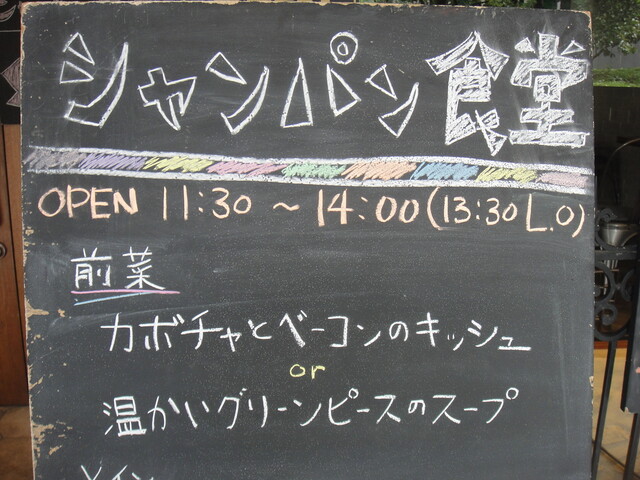 シャンパン食堂
OPEN 11:30 ~ 14:00 (13:30 L.O)
前菜
カボチャとベーコンのキッシュ
or
温かいグリーンピースのスープ
メイン